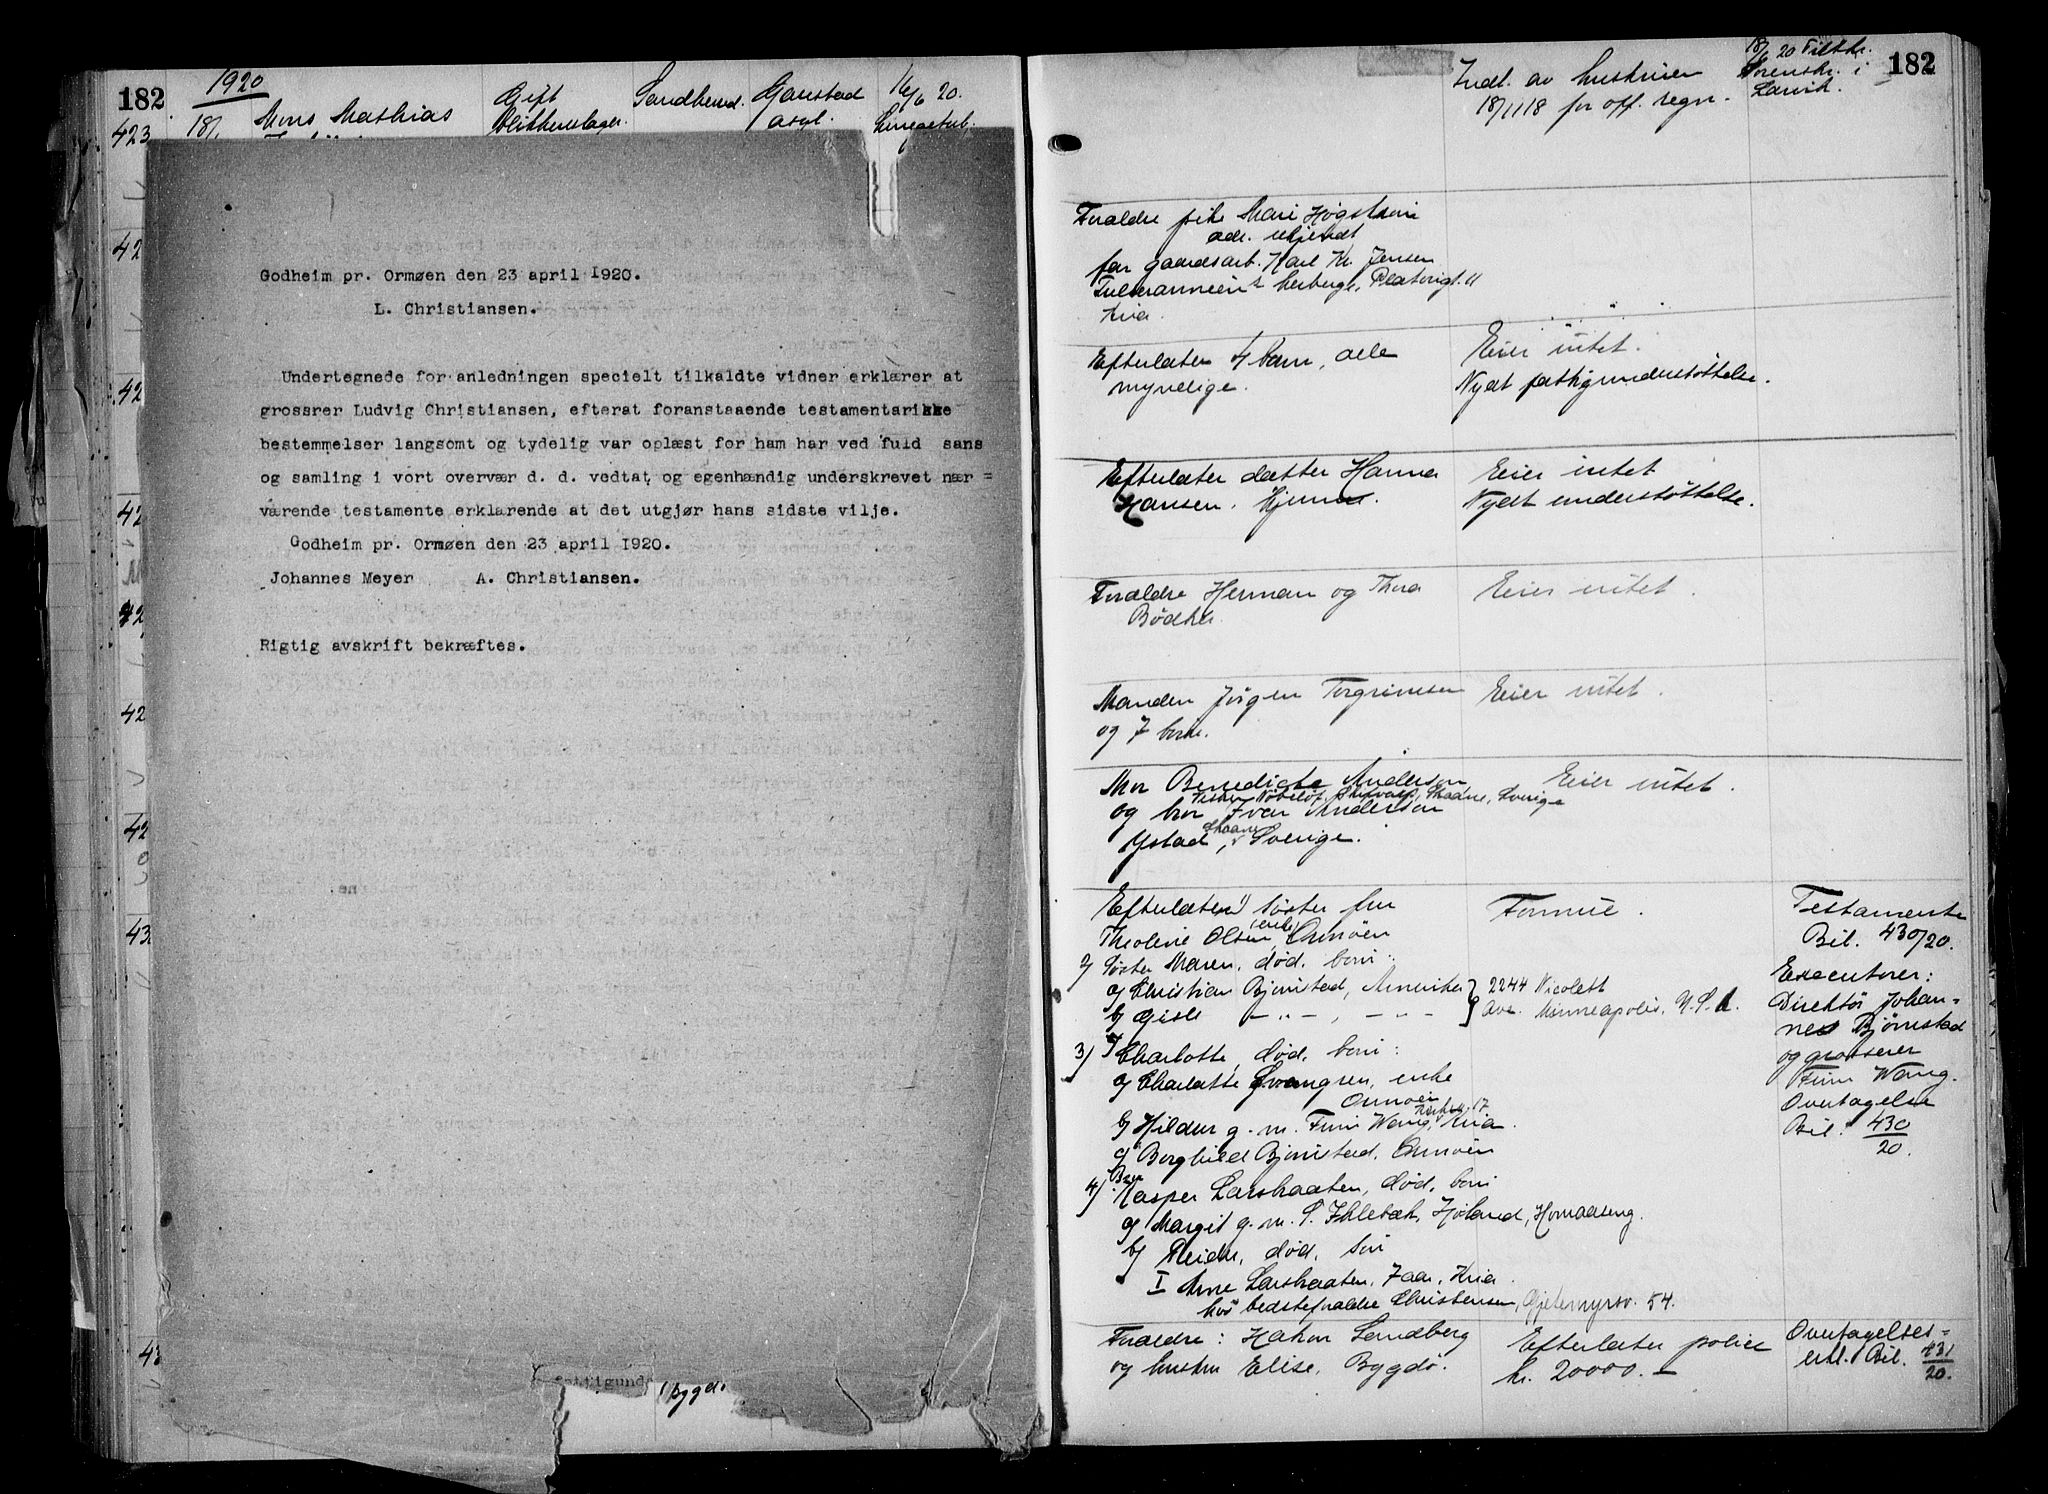 182
1920
423 18/ Mons Mathias Gift Sandherred. Gaustad 16/6 20.
Blikkenslager. asyl.
42
42
42
42
42
42
43
43
Godheim pr. Ormøen den 23 april 1920.
L. Christiansen.
Undertegnede for anledningen specielt tilkaldte vidner erklærer at
grossrer Ludvig Christiansen, efterat foranstaaende testamentarikke
bestemmelser langsomt og tydelig var oplæst for ham har ved fuld sans
og samling i vort overvær d. d. vedtat og egenhændig underskrevet nær =
værende testamente erklærende at det utgjør hans sidste vilje.
Godheim pr. Ormøen den 23 april 1920.
Johannes Meyer A. Christiansen.
Rigtig avskrift bekræftes.
fattigund
Bygdø
182
Indl. av hustruen
18/11 18 for off. regn.
18/6 20 Tilskr.
Sorenskr. i
Larvik.
Forældre pike Mari Høgstveir
adr. ukjendt
far gaardsarb. Karl Kr. Jensen
herberge, 11
Kria.
Efterlater 4 barn, alle
myndige.
Eier intet.
Nydt fattigunderstøttelse.
Efterlater datter Hanna
Hansen, Hjemme.
Eier intet
Nydt understøttelse.
Forældre Herman og Thora
Bødker.
Eier intet.
Manden Jørgen Torgrimsen
og 7 barn.
Eier intet.
Mor Benedigte Anderson
Skadne, Sverige
og bror Ivar Anderson
Ystad, Skaane Sverige.
Eier intet.
Efterlater 1) Søster fru
Theoline Olsen (enke) Ormøen
2) Søster Maren, død, barn:
a) Christian Bjørnstad, Amerika
b) Gisle — „ — , — „ —
2244 Nicolett
Ave. Minneapolis, U.S.A.
3) Charlotte, død, barn:
a) Charlotte Svangren, enke
Ormøen
b) Hildur g. m. Finn Wang, 17 Kria.
c) Borghild Bjørnstad, Ormøen
4) Bror Kasper Larsbraaten, død, barn
a) Margit g. m. S. Ihlebæk, Høland, Homaaseng.
b) Reidar, død, barn
I Arne Larsbraaten, 7 aar, Kria.
hos bedsteforældre Christensen, Gjetemyrsv. 54.
Formue.
Testamente
Bil. 430/20.
Executorer:
Direktør Johan-
nes Bjørnstad
og grosserer
Finn Wang.
Overtagelse
Bil. 430/20.
Forældre: Hakon Sandberg
og hustru Elise, Bygdø.
Efterlater police
kr. 20000.—
Overtagelses-
erkl. Bil. 431/20.